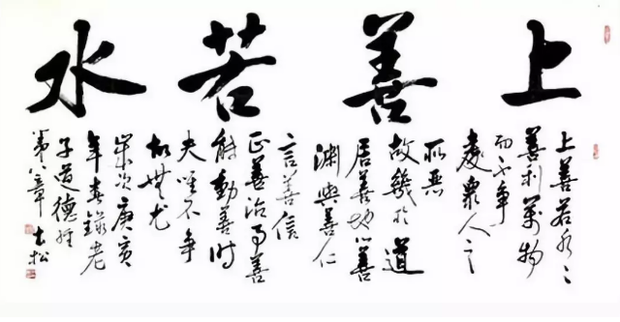 上善若水
上善若水〻
善利萬物
而不争
處衆人之
所惡
故幾於道
居善地心善
淵與善仁
言善信
正善治事善
能動善时
夫唯不争
故無尤
歲次庚寅
年春錄老
子道德經
第八章